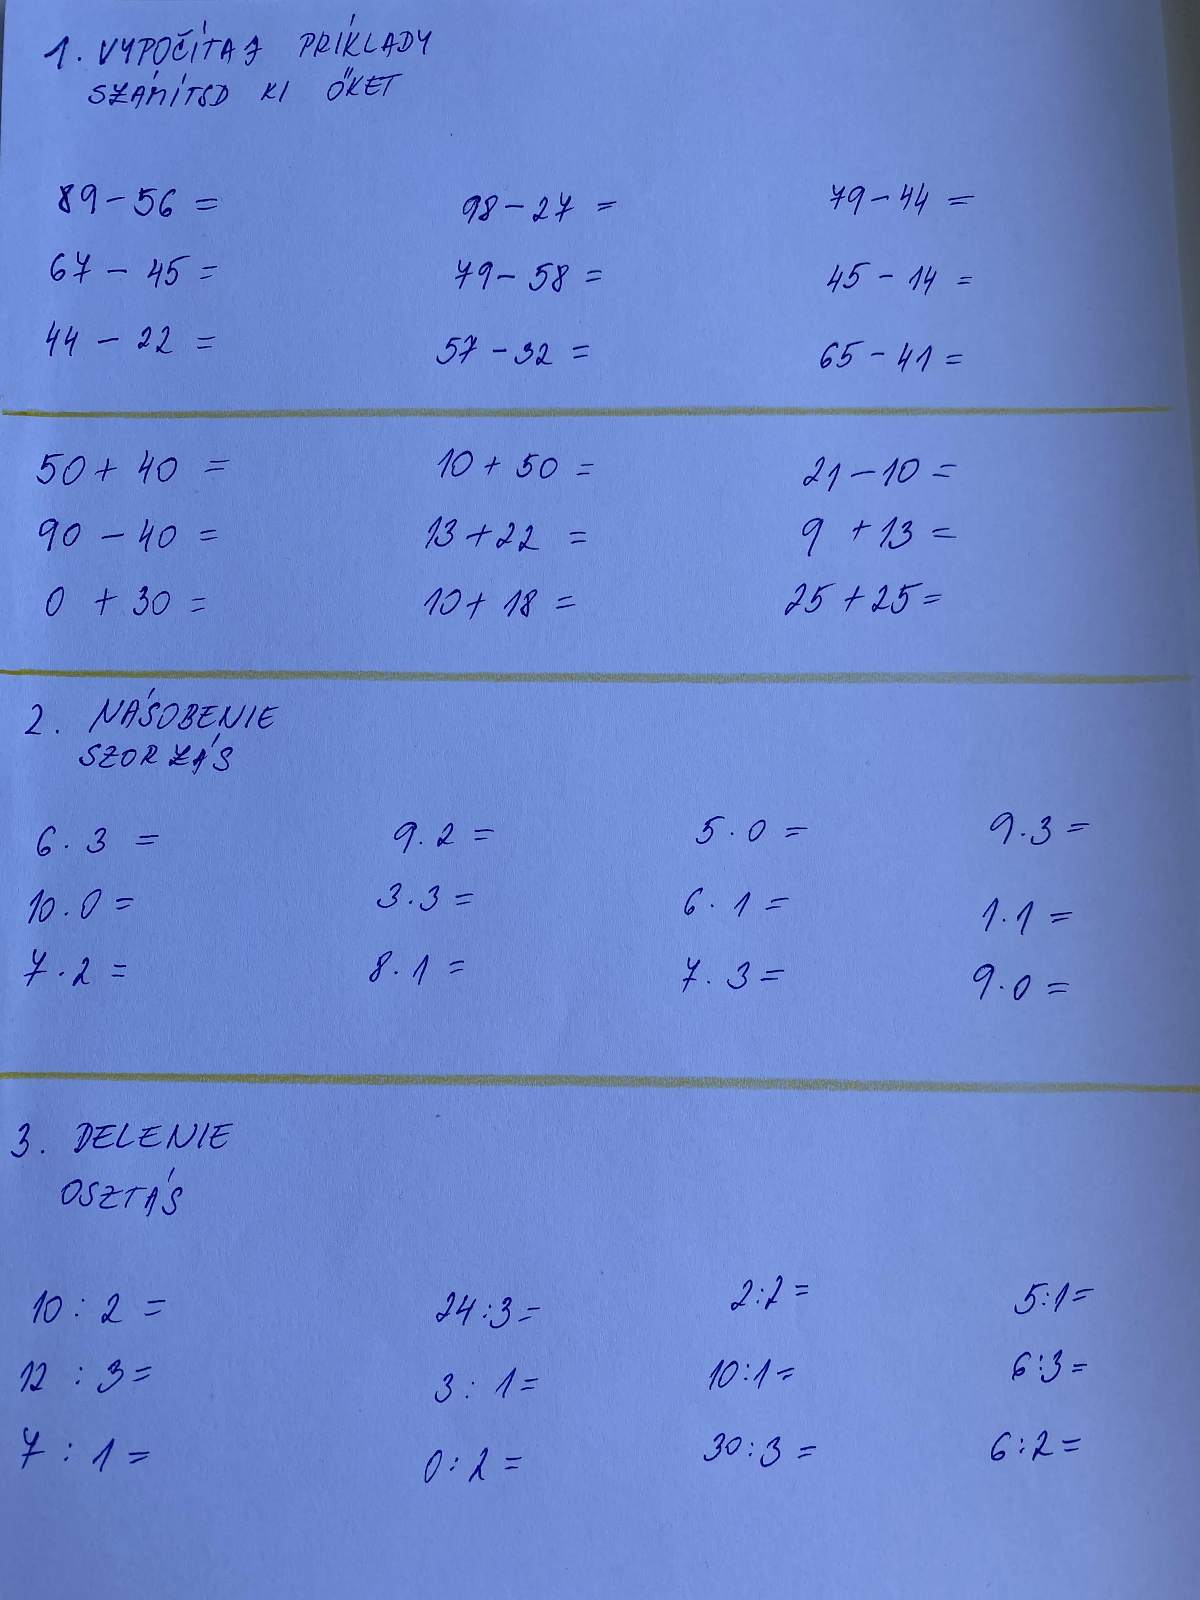 1. VYPOČÍTAJ PRÍKLADY
SZÁMÍTSD KI ŐKET
89 - 56 = 98 - 27 = 79 - 44 =
67 - 45 = 79 - 58 = 45 - 14 =
44 - 22 = 57 - 32 = 65 - 41 =
50 + 40 = 10 + 50 = 21 - 10 =
90 - 40 = 13 + 22 = 9 + 13 =
0 + 30 = 10 + 18 = 25 + 25 =
2. NÁSOBENIE
SZORZÁS
6 . 3 = 9 . 2 = 5 . 0 = 9 . 3 =
10 . 0 = 3 . 3 = 6 . 1 = 1 . 1 =
7 . 2 = 8 . 1 = 7 . 3 = 9 . 0 =
3. DELENIE
OSZTÁS
10 : 2 = 24 : 3 = 2 : 2 = 5 : 1 =
12 : 3 = 3 : 1 = 10 : 1 = 6 : 3 =
7 : 1 = 0 : 2 = 30 : 3 = 6 : 2 =